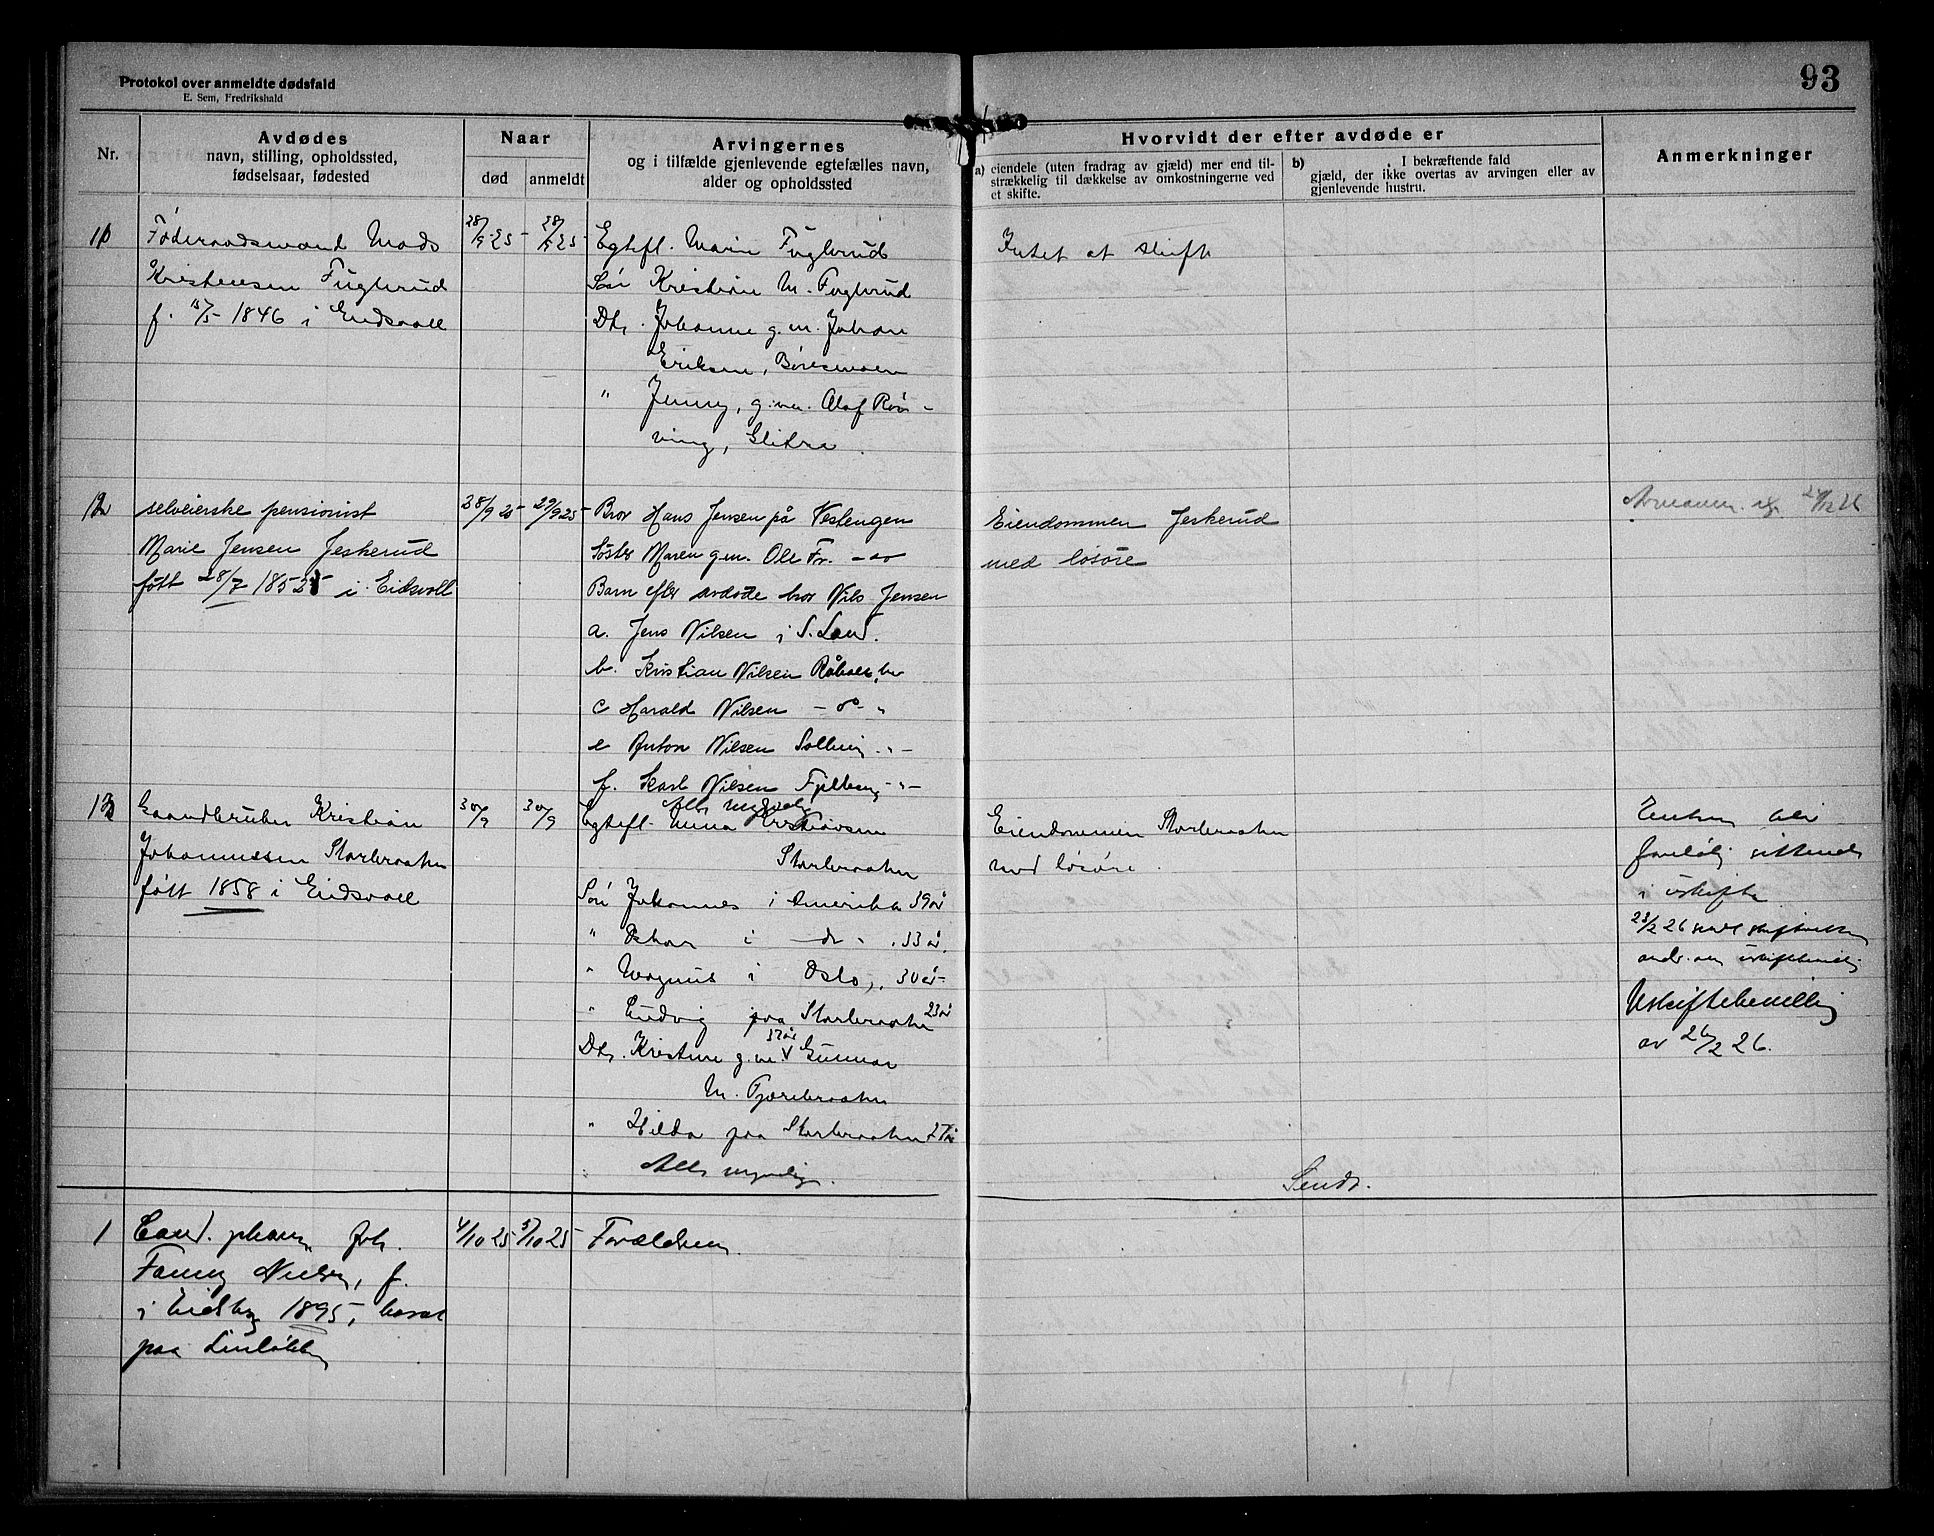 Protokol over anmeldte dødsfald
E. Sem, Fredrikshald
93
Nr.
Avdødes
navn, stilling, opholdssted,
fødselsaar, fødested
Naar
død
anmeldt
Arvingernes
og i tilfælde gjenlevende egtefælles navn,
alder og opholdssted
Hvorvidt der efter avdøde er
a) eiendele (uten fradrag av gjæld) mer end til-
strækkelig til dækkelse av omkostningerne ved
et skifte.
b) I bekræftende fald
gjæld, der ikke overtas av arvingen eller av
gjenlevende hustru.
Anmerkninger
Føderaadsmand Mads
Kristensen Fuglerud
f. 15/5 1846 i Eidsvoll
28/9 25
28/9 25
Egtefl. Marie Fuglerud
Søn Kristian M. Fuglerud
Dtr. Johanne g.m. Johan
Eriksen, Børesmoen
" Jenny, g.m. Olaf
Intet at skifte
12
selveierske pensionist
Marie Jensen Jeskerud
født 28/7 1852 i Eidsvoll
28/9 25
29/9 25
Bror Hans Jensen på Vestengen
Søster Maren g.m. Ole Fr.
Barn efter avdøde bror Nils Jensen
a. Jens Nilsen i S. Land.
b. Kristian Nilsen Råholt, her
c Harald Nilsen - do - "
e Anton Nilsen
f. Karl Nilsen
Alle myndig
Eiendommen Jeskerud
med løsøre
13
Gaardbruker Kristian
Johannessen Storbraaten
født 1858 i Eidsvoll
30/9
30/9
Egtefl. Kristiansen
Storbraaten
Søn Johannes i Amerika 39 år
" Oskar i - do - 33 år
" Magnus i Oslo, 30 år
" Ludvig paa Storbraaten 23 år
37 år
Dtr. Kristine g.m. Gunnar
M.
" Hilda paa Storbraaten 27 år
Alle myndig.
Eiendommen Storbraaten
med løsøre.
Enken blir
foreløbig sittende
i uskifte
uskiftebevilling
Uskiftebevilling
av 26/2 26.
Sendt.
1
Cand. pharm Joh.
Fanny Nielsen, f.
i 1895, bosat
paa
4/10 25
5/10 25
Forældrene